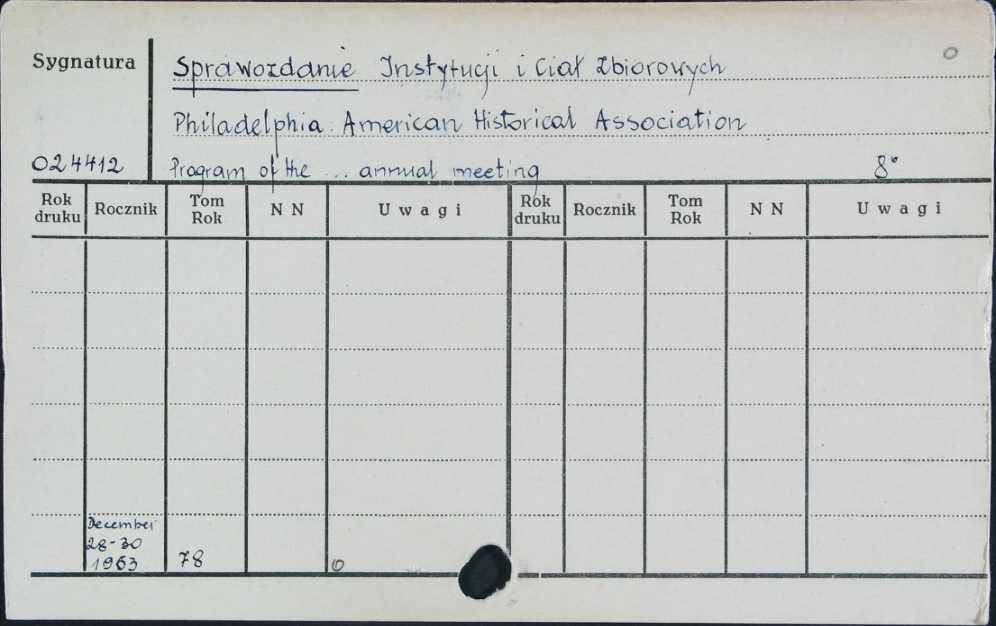 Sygnatura
Sprawozdanie Instytucji i Ciał Zbiorowych
o
Philadelphia: American Historical Association
024412
Program of the ... annual meeting
8°
Rok druku Rocznik Tom Rok N N Uwagi Rok druku Rocznik Tom Rok N N Uwagi
December
28-30
1963 78 o